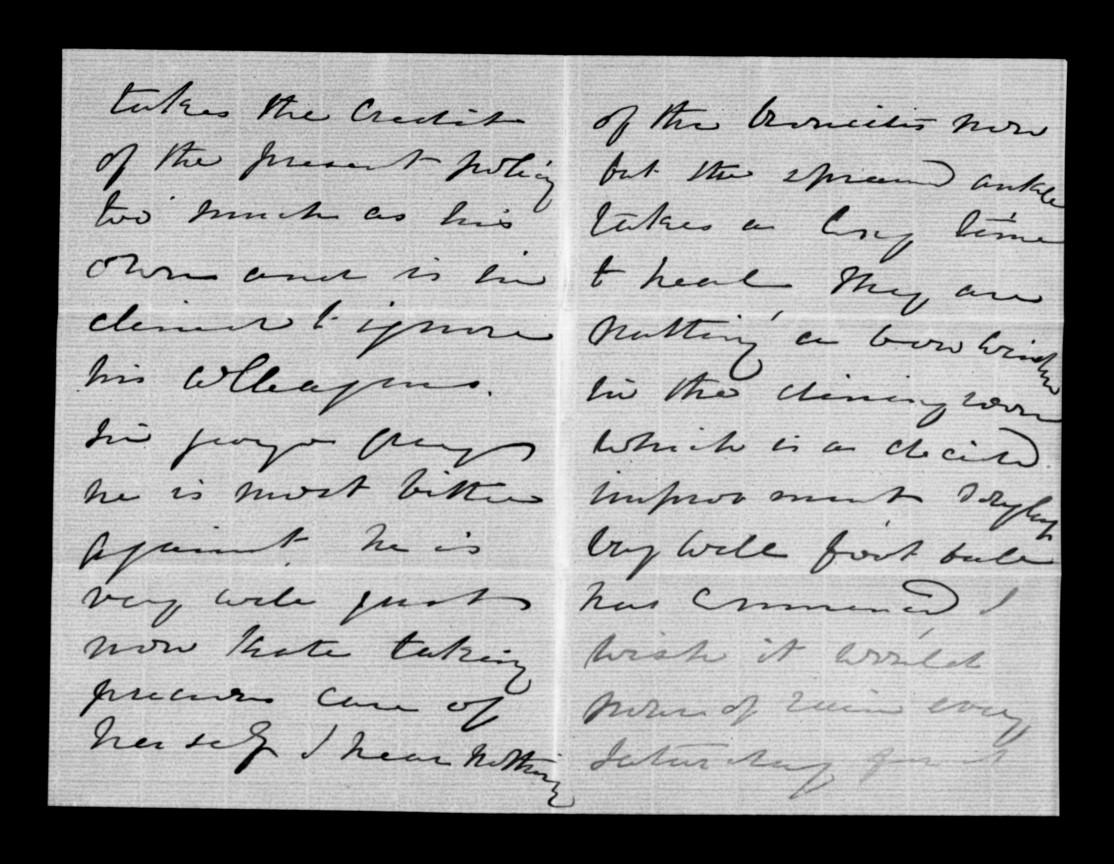 takes the credit
of the present policy
too much as his
own and is in
clined to ignore
his colleagues.
Sir George Grey
he is most bitter
against. he is
very well just
now Kate taking
precious care of
herself I hear nothing
of the bronchitis now
but the sprained ankle
takes a long time
to heal They are
putting a bow window
in the dining room
which is a decided
improvement
will foot ball
has commenced I
wish it would
pour of rain every
Saturday